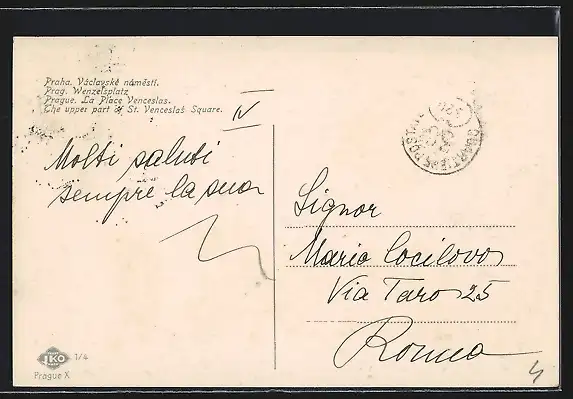 Praha. Václavské náměstí.
Prag. Wenzelsplatz
Prague. La Place Venceslas.
The upper part of St. Venceslaš Square.
IV
Molti saluti
sempre la sua
Signor
Mario Cocilovo
Via Taro 25
Roma
JKO
1/4
Prague X
4